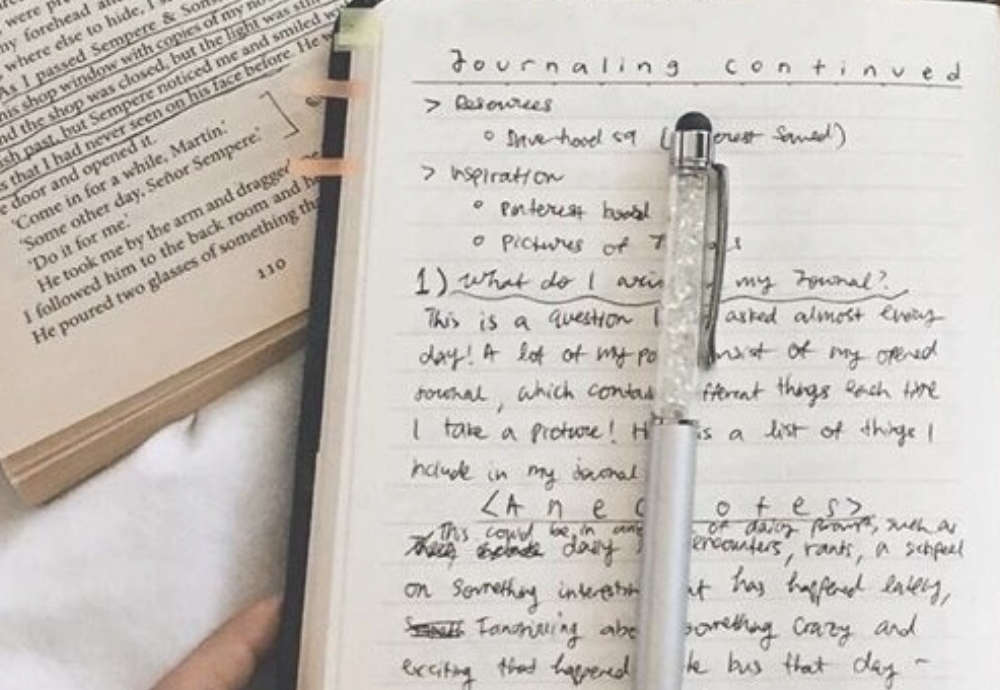 were pr
my forehead and
where else to hide, I
As I passed Sempere & Sons
his shop window with copies of my no
and the shop was closed, but the light was still
ish past, but Sempere noticed me and smiled w
s that I had never seen on his face before. He w
e door and opened it.
'Come in for a while, Martín.'
'Some other day, Señor Sempere.'
'Do it for me.'
He took me by the arm and dragged
I followed him to the back room and he
He poured two glasses of something th
110
Journaling continued
> Resources
(erest saved)
> Inspiration
o Pinterest board
o Pictures of
1) What do I my Journal?
This is a question I asked almost every
day! A lot of my po nsist of my opened
journal, which contai fferent things each time
I take a picture! H is a list of things I
include in my journal
<Anec otes>
This could be in of daily prompts, such as
daily encounters, rants, a
on something interestin at has happened lately,
abo something crazy and
exciting that happened the bus that day -